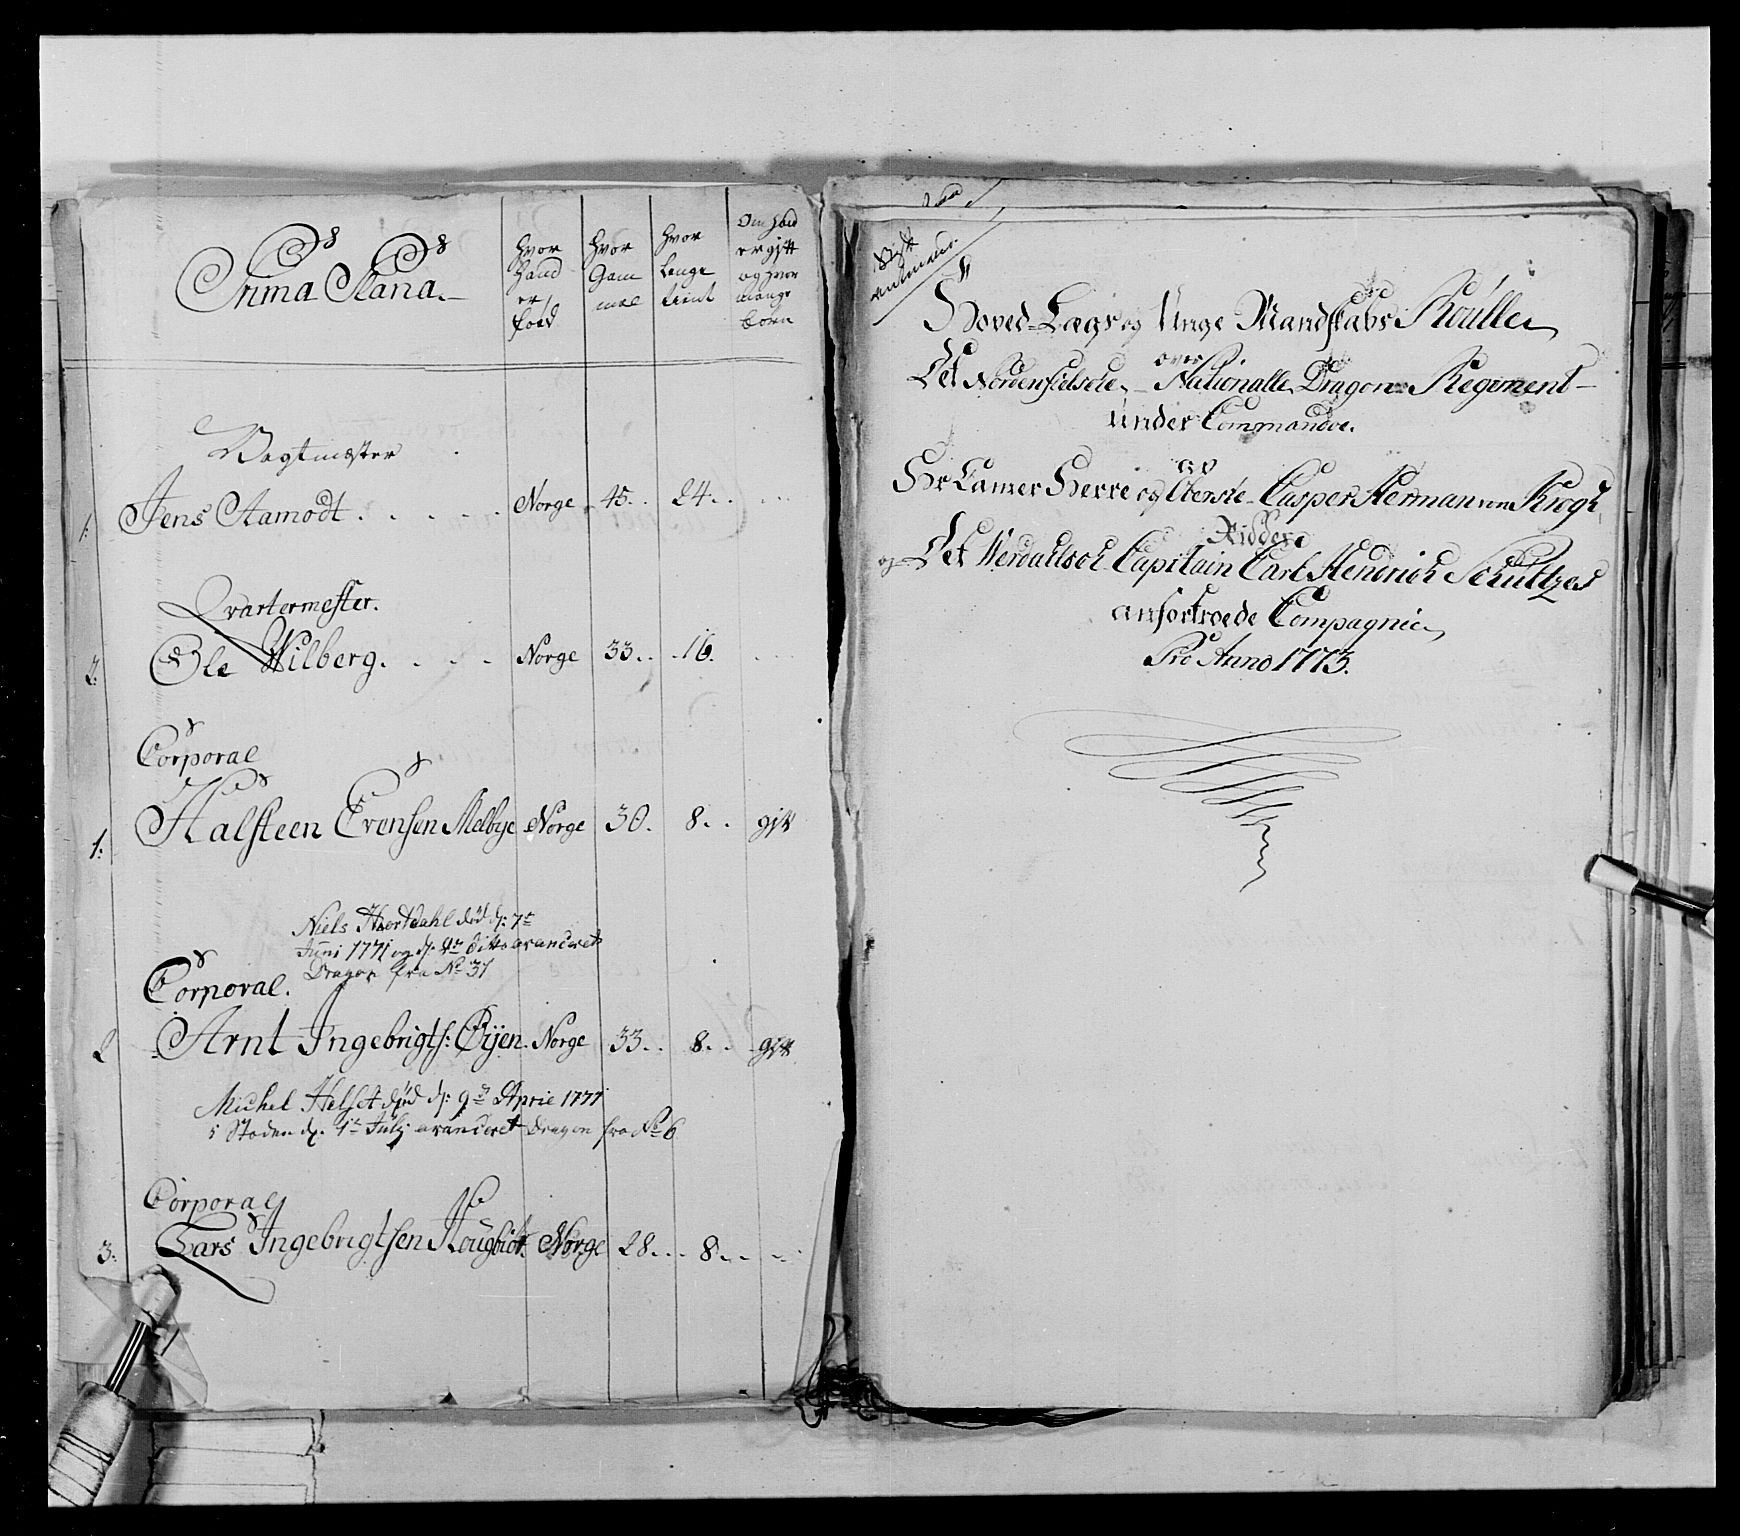 Prima Plana.
Hvor
Hand
er
fød
Hvor
Gam
mel
Hvor
Lenge
tient
Om hand
er gift
og hvor
mange
Børn
Vagtmester
1. Jens Aamodt . . . . . Norge 45. . 24. . . . .
Qvartermester.
2. Ole Wilberg. . . . . Norge 33. . . 16. . . .
Corporal
1: Halsteen Evensen Melbye Norge 30. 8. . gift
Niels Hiortdahl død d: 7de
Juni 1771 og d: 4de ditto avanceret
Dragon fra No 31
Corporal.
2 Arnt Ingebrigts: Øÿen. Norge 33. . 8. . gift
Michel Helset død d: 9de April 1771
i Steden d. 1te Julj avanceret Dragon fra No 6
Corporal
3: Lars Ingebrigtsen Hougbiör. Norge 28. . . 8. . . .
Hoved-Lægs og Unge Mandskabs Roulle
over
Det Nordenfielsche National Dragon Regiment
under Commandoe.
af
Hr Camer Herre og Oberste Casper Herman von Krogh
Riddere
og Det Werdalsch Capitain Carl Hendrich Schultzes
anfortroede Compagnie
Pro Anno 1773.